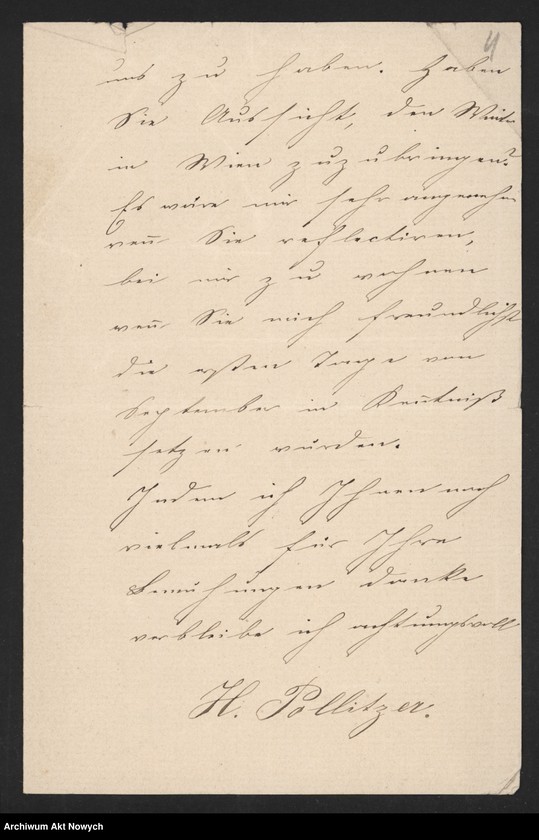 4
uns zu haben. Haben
Sie Aussicht, den Winter
in Wien zuzubringen?
Es wäre mir sehr angenehm
wen̅ Sie reflectiren,
bei mir zu wohnen
wen̅ Sie mich freundlichst
die ersten Tage von
September in Ken̅tniß
setzen würden.
Indem ich Ihnen noch
vielmals für Ihre
Bemühungen danke
verbleibe ich achtungsvoll
H. Pollitzer.
Archiwum Akt Nowych